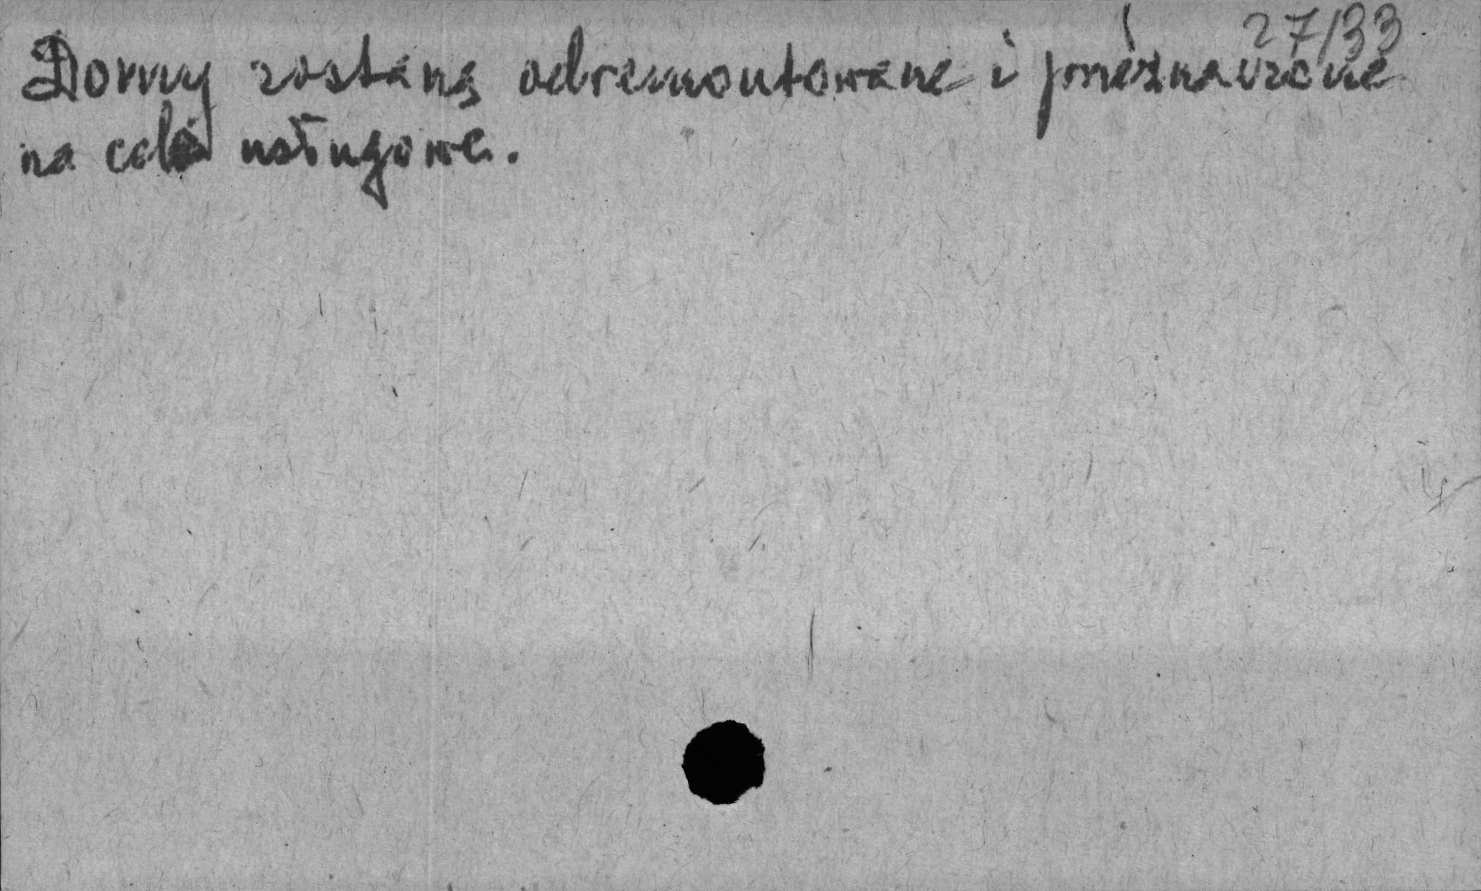 27/33
Domy zostaną odremontowane i przeznaczone
na cele usługowe.